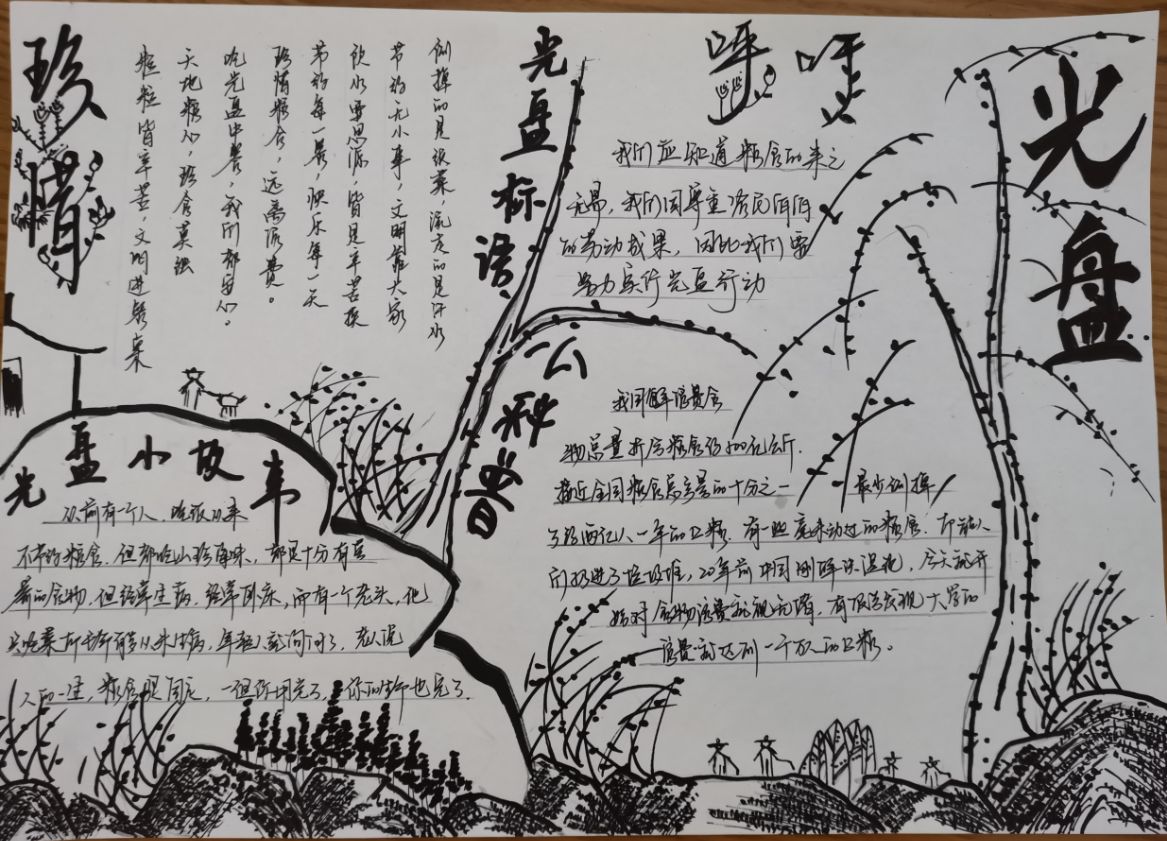 珍惜
光盘标语
倒掉的是饭菜，流走的是汗水
节约无小事，文明靠大家
饮水要思源，皆是辛苦换
节约每一餐，快乐每一天
珍惜粮食，远离浪费。
吃光盘中餐，我们都留心。
天地粮心，珍食莫
粒粒皆辛苦，文明进餐来
呼吁
我们应知道粮食的来之
不易，我们同尊重农民
的劳动成果，因此我们要
努力实行光盘行动
光盘
公科普
我国每年浪费食
物总量折合粮食约500亿公斤，
接近全国粮食总产量的十分之一
最少倒掉
了约两亿人一年的口粮，有一些竟未动过的粮食，却被人
们扔进了垃圾堆，20年前中国刚解决温饱，今天就开
始对食物浪费就视无睹，有报告发现大学的
浪费就达到一千万人的口粮。
光盘小故事
从前有一个人，吃饭从来
不节约粮食，但都吃山珍海味，都是十分有营
养的食物，但经常生病，经常卧床，而有一个老头，他
从未生病，年轻人就问问了，老人说
人的一生，粮食是固定，一但你用完了，你的生命也完了．